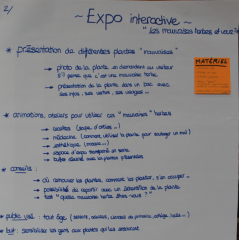 2/
~ Expo interactive ~
"Les mauvaises herbes et vous?"
* présentation de différentes plantes "mauvaises"
→ photo de la plante, en demandant au visiteur
s'il pense que c'est une mauvaise herbe.
→ présentation de la plante dans un bac avec
ses infos, ses vertus, ses usages...
MATÉRIEL
* animations, ateliers pour utiliser ces "mauvaises" herbes
→ recettes (soupe d'orties...)
→ médecine (comment utiliser la plante pour soulager un mal)
→ esthétique (masque...)
→ espace d'expo transformé en serre
→ buffet réalisé avec les plantes présentées
* conseils :
→ où retrouver les plantes, comment les planter, s'en occuper...
→ possibilité de repartir avec un échantillon de la plante
→ test "quelle mauvaise herbe êtes-vous?"
* public visé : tout âge
* but : sensibiliser les gens aux plantes qui les entourent